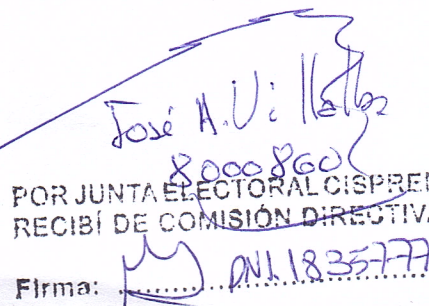 José A. Villalba
8000860
POR JUNTA ELECTORAL CISPREN
RECIBÍ DE COMISIÓN DIRECTIVA
Firma: DNI. 18357777